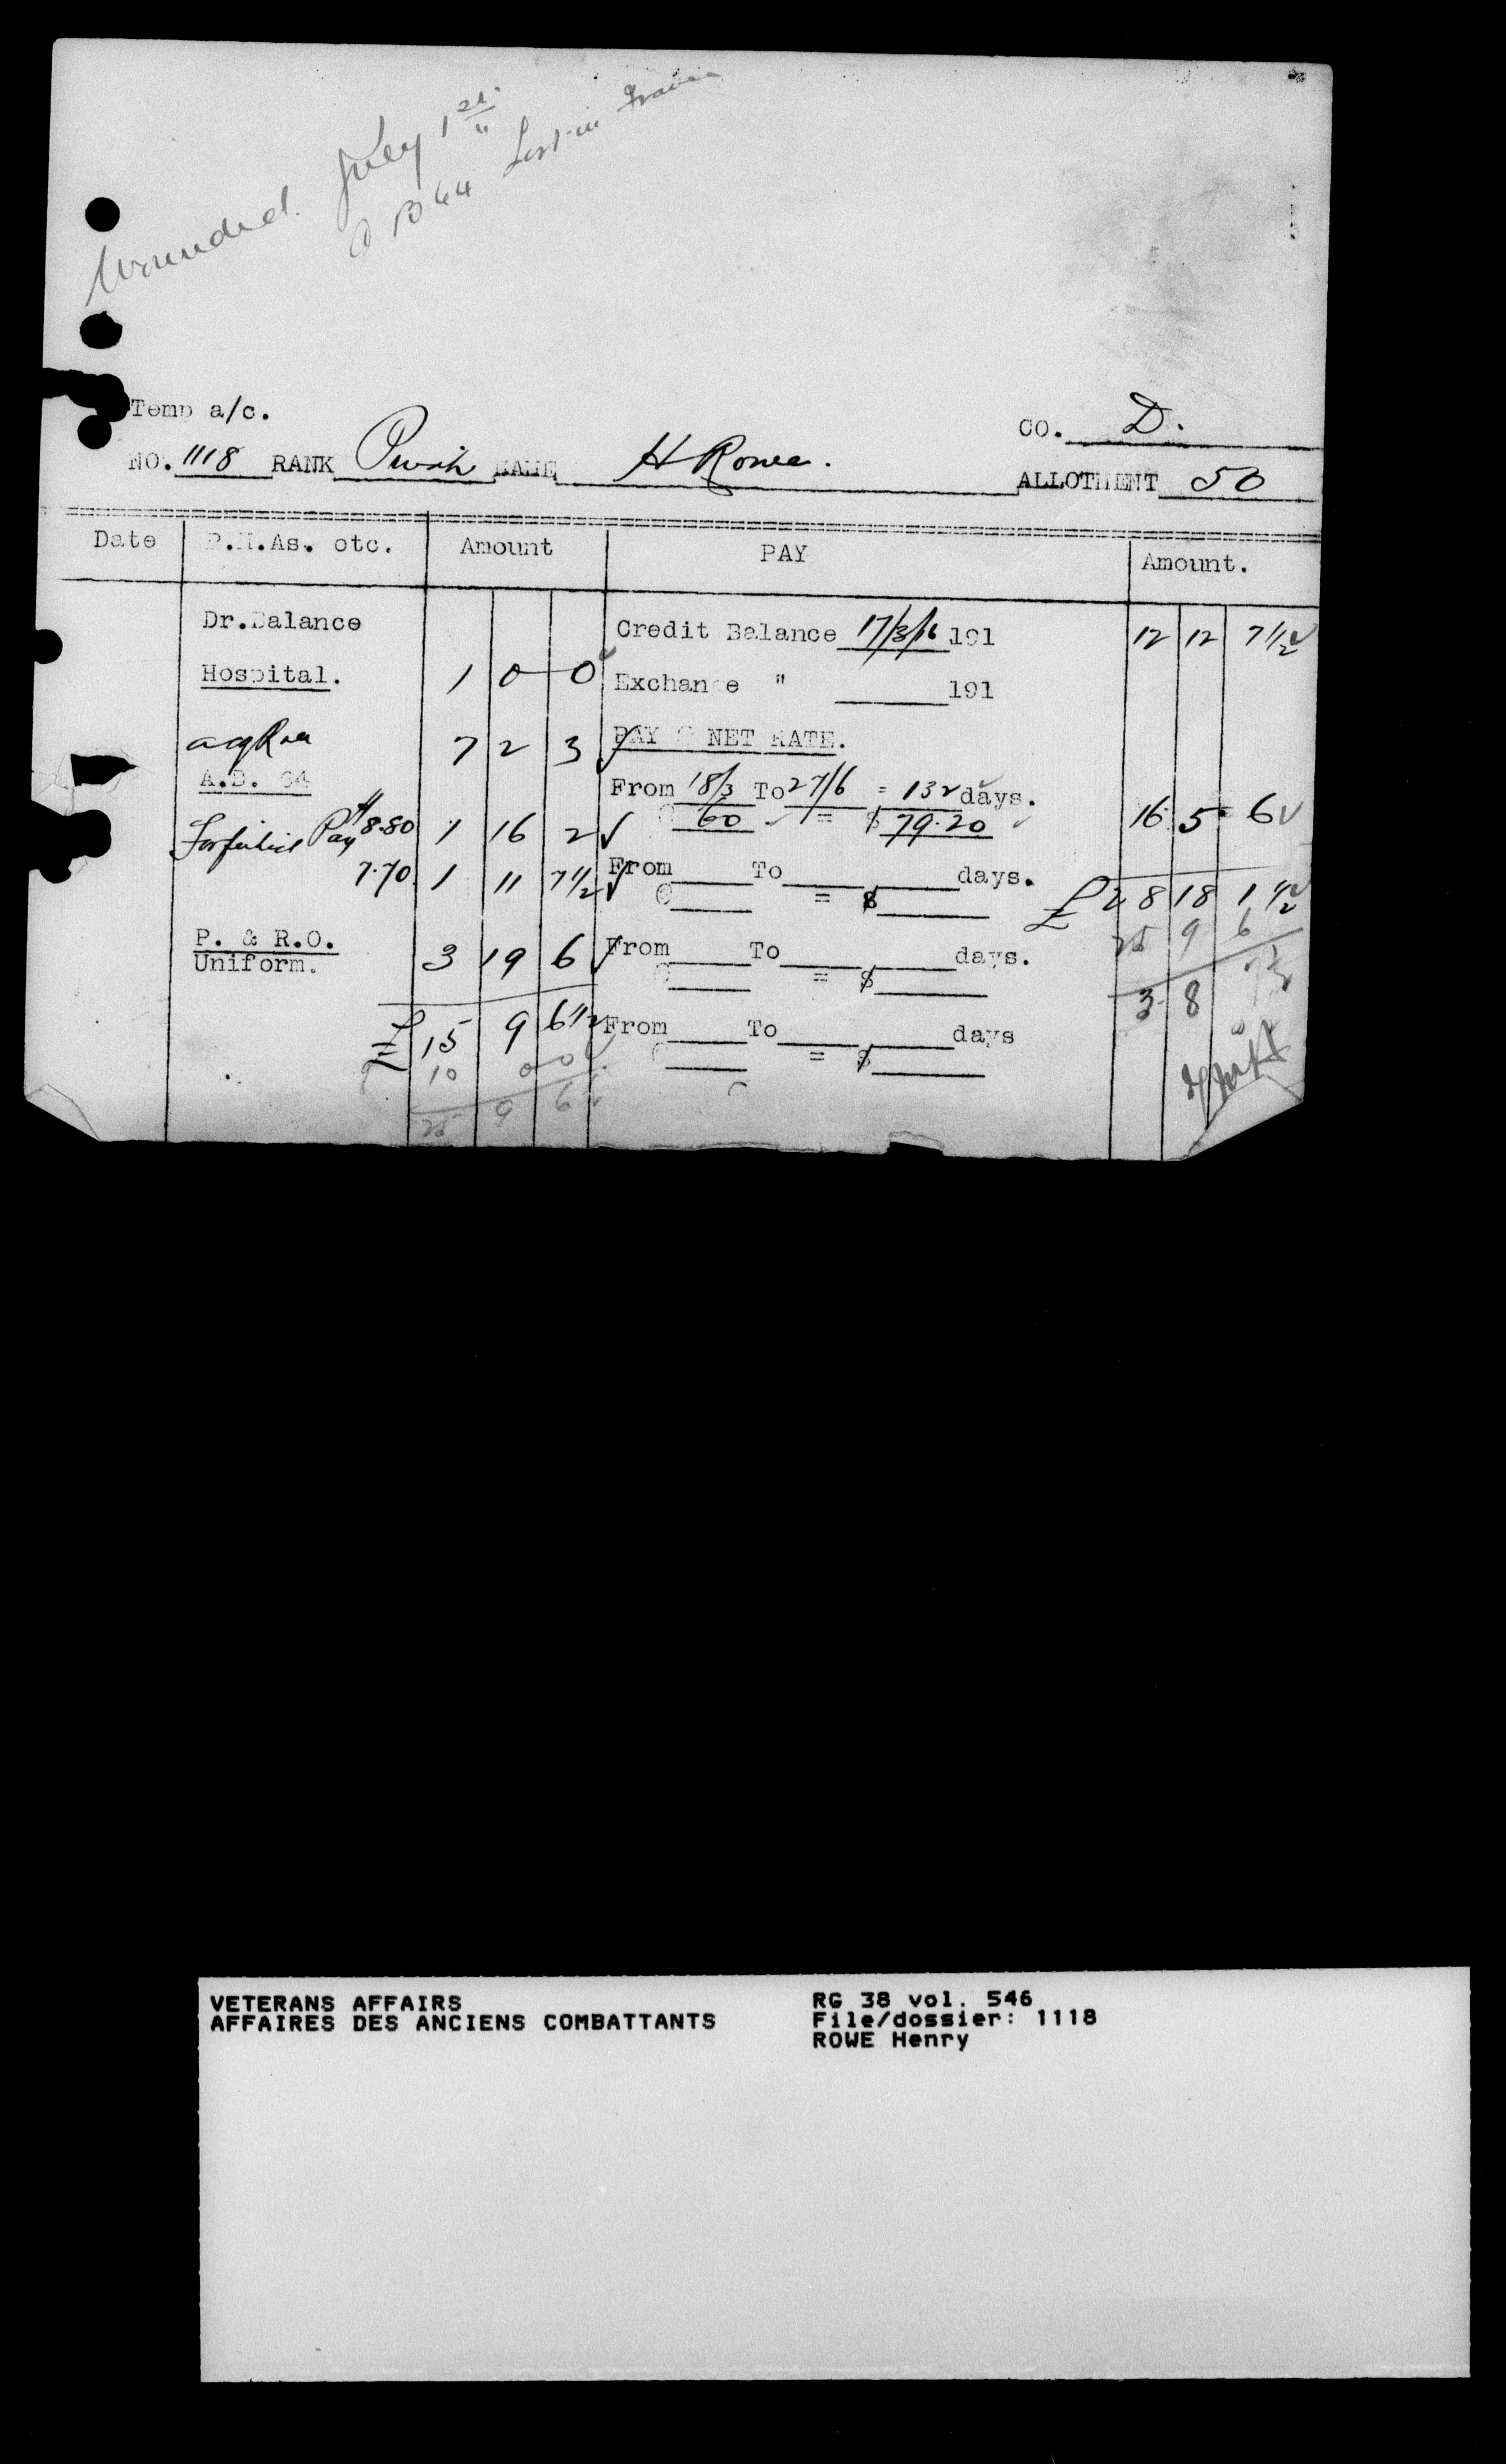 Wounded. July 1st
A B 64 Lost in France
Temp a/c.
CO. D.
NO. 1118 RANK Private NAME H Rowe.
ALLOTMENT 50
Date P.M.As. etc. Amount PAY Amount.
Dr.Balance Credit Balance 17/3/16 191 12 12 7 1/2
Hospital. 1 0 0 Exchange " 191
acq Roll 7 2 3 PAY @ NET RATE.
A.B. 64 From 18/3 To 27/6 = 132 days.
Forfeited Pay $8.80 1 16 2 @ 60 = $ 79.20 16 5 6
7.70 1 11 7 1/2 From To days.
@ = $ £ 28 18 1 1/2
P. & R.O. 25 9 6
Uniform. 3 19 6 From To days.
@ = $ 3 8 7
£ 15 9 6 1/2 From To days
10 0 0 @ = $
25 9 6 1/2
VETERANS AFFAIRS
AFFAIRES DES ANCIENS COMBATTANTS
RG 38 vol. 546
File/dossier: 1118
ROWE Henry